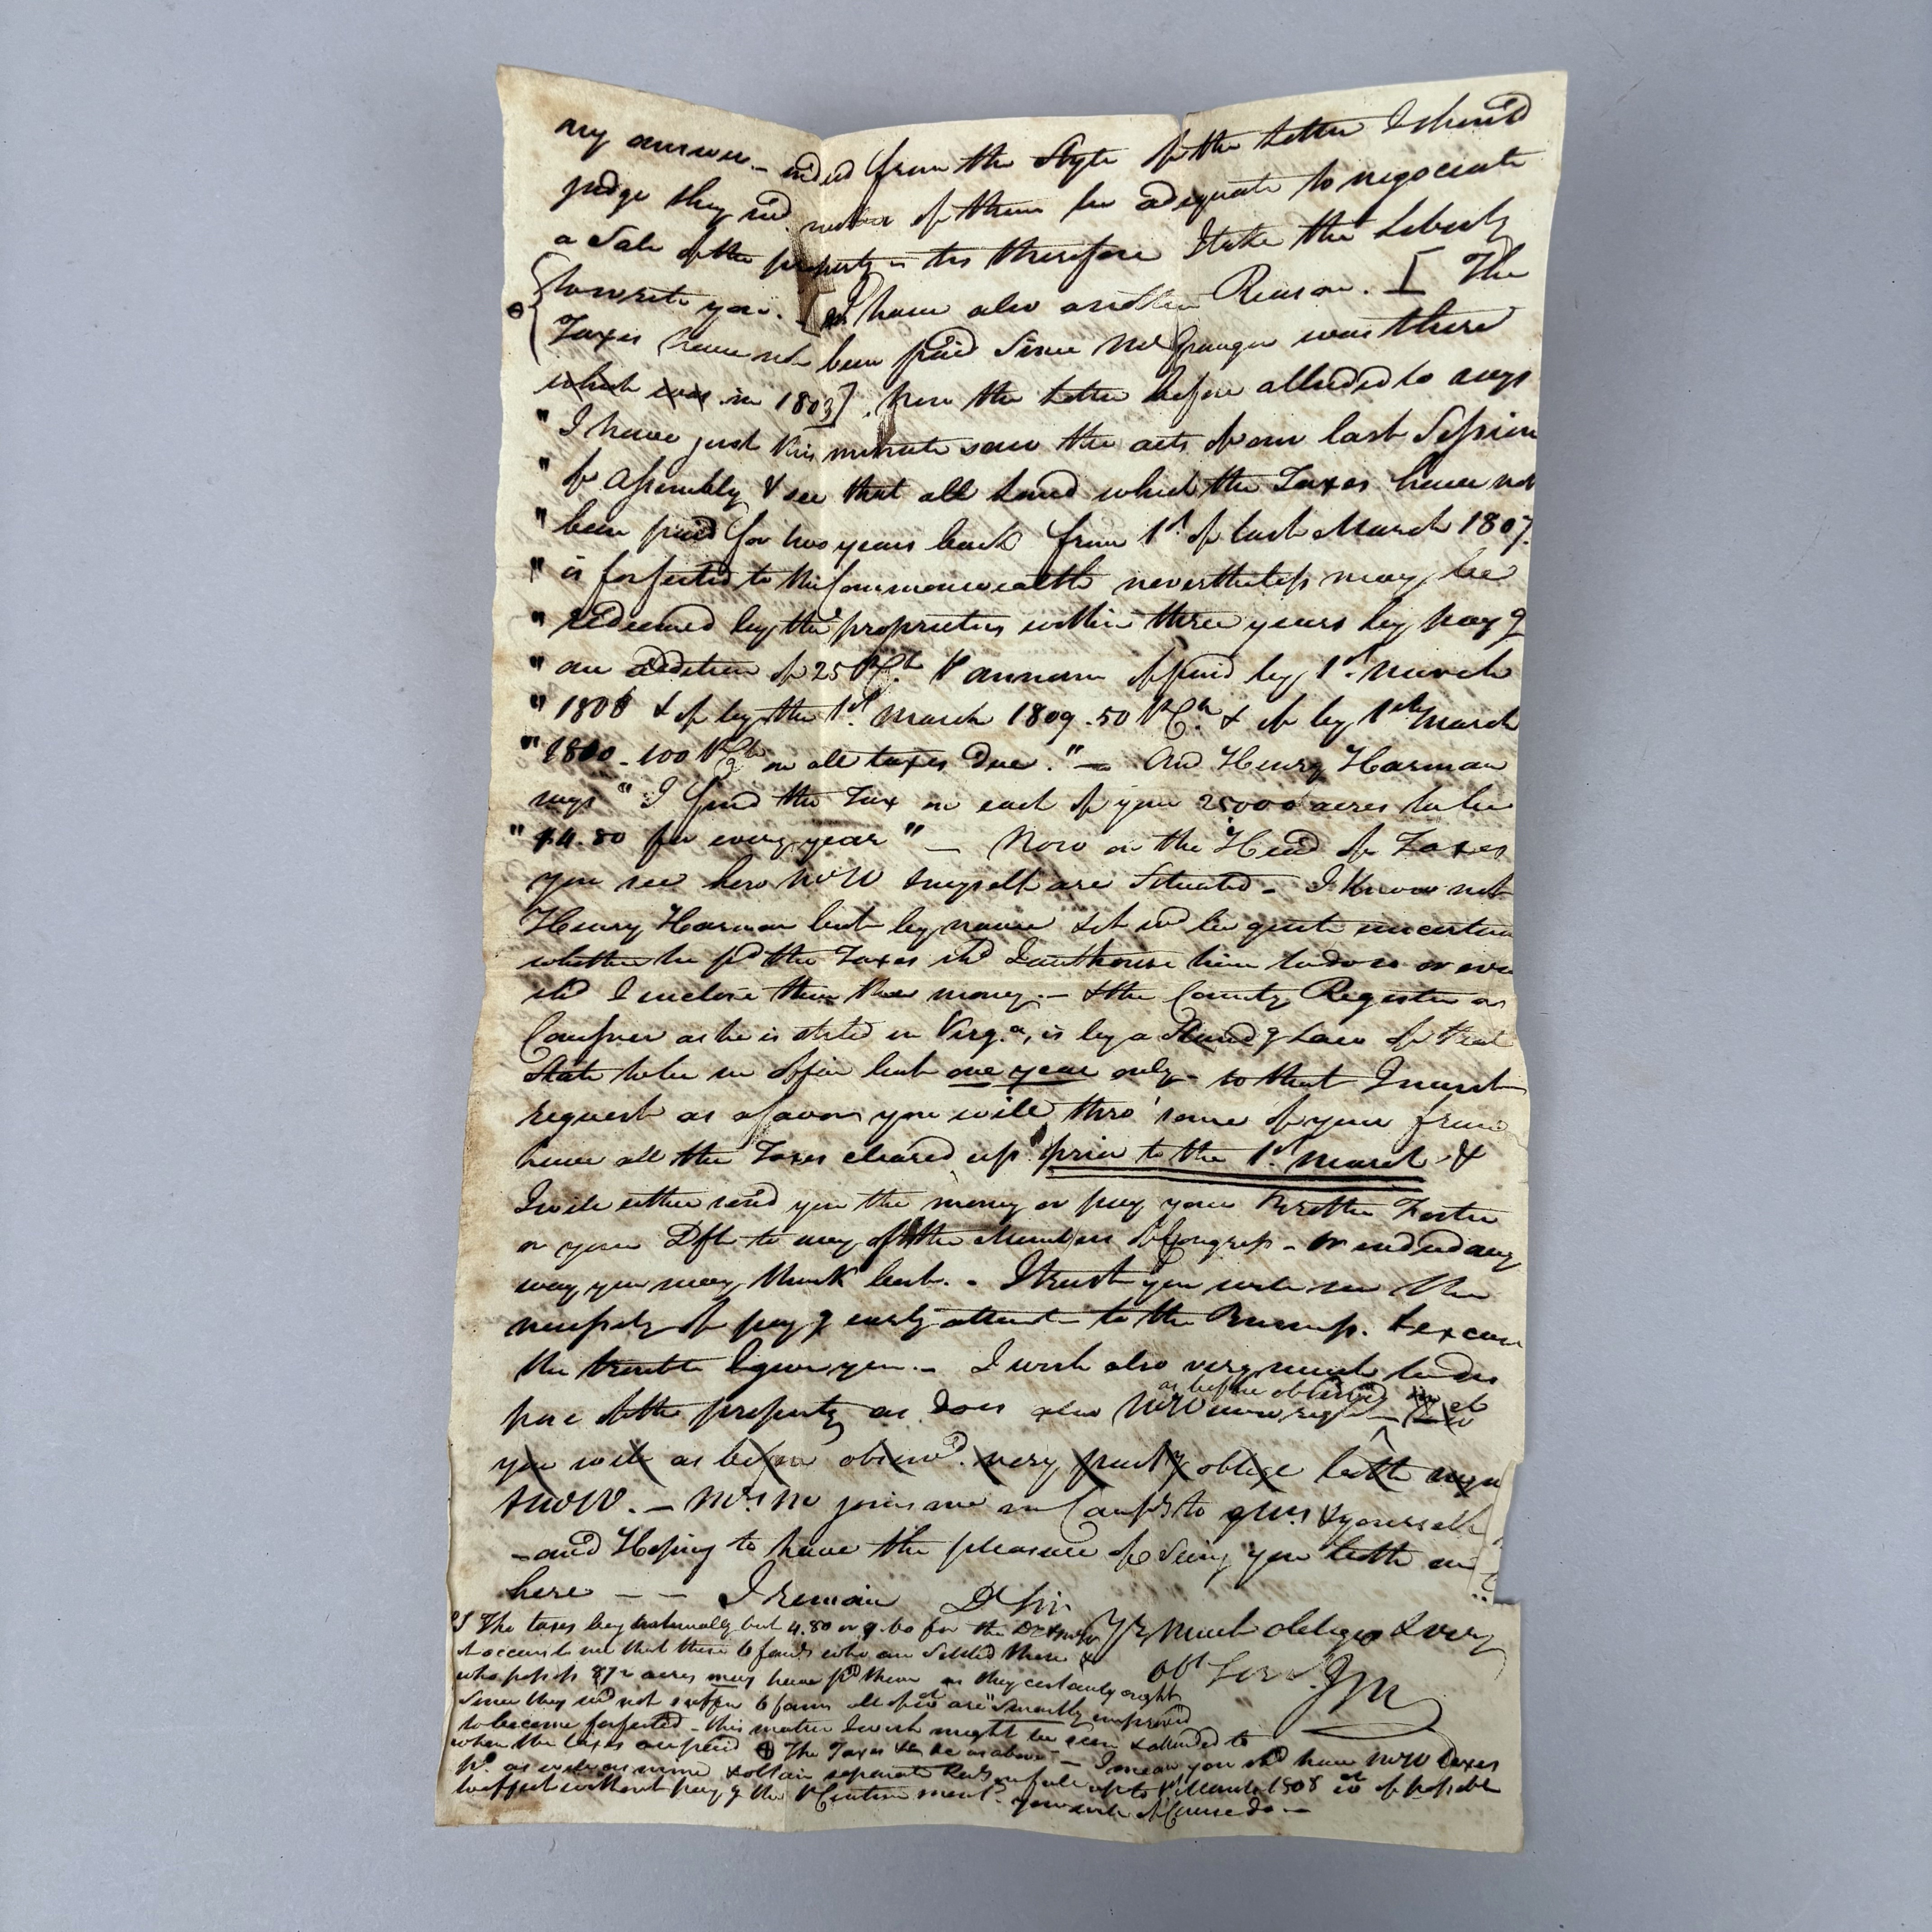 my answer – indeed from the Style of the Letter I should
judge they wd. neither of them be adequate to negociate
a Sale of the property – tis therefore I take the Liberty
to write you. – [I have also another Reason. [ The
Taxes have not been paid Since Mr Granger was there
which was in 1803]. Now the Letter before alluded to says
" I have just this minute saw the acts of our last Session
" of Assembly & see that all Land which the Taxes have not
" been paid for two years back from 1st. of last March 1807.
" is forfeited to the Commonwealth nevertheless may be
" redeemed by the proprietors within three years by payg
" an addition of 25 PCt. P annum if paid by 1st. March
" 1808 & if by the 1st. March 1809 . 50 PCt. & if by 1st March
" 1810 – 100 PCt on all taxes due." – And Henry Harman
says " I find the Tax on each of your 25000 acres to be
" $4.80 for every year" – Now on the Head of Taxes
you see how WW & myself are Situated – I Know not
Henry Harman but by name & it wd be quite uncertain
whether he pd the Taxes shd I authorise him to do so or even
shd I inclose them the money. – & the County Register or
as he is stiled in Virga, is by a Standg Law of that
State to be in office but one year only – so that I must
request as a favor you will, thro' some of your friends
have all the Taxes cleared up prior to the 1st. March &
I will either send you the money or pay your Brother Foster
or your Dft to any of the Members of Congress – or indeed any
way you may think best. – I trust you will see the
necessity of payg early attent– to the Business. & excuse
the trouble I give you. – I wish also very much to dis
pose of the property as does also WW
as before observed
you will as before observd. very greatly oblige both myself
& WW. – Mrs. M joins me in Compts to Mrs. & yourself
– and Hoping to have the pleasure of Seeing you both
here – – I remain Dr Sir
Yr Much obliged & very
obt Servt. JM
PS The taxes being annually but 4.80 or 9.60 for the
it occurs to me that these 6 famls who are Settled there &
who possess 872 acres may have pd them as they certainly ought
Since they wd not suffer 6 farms all of wh are "Smartly improved"
to become forfeited – this matter I wish might be seen & attended to
when the taxes are paid ⊕ The Taxes to be as above – I mean you shd have WW taxes
pd. as well as mine & obtain separate Rects in full up to 1st March 1808 if possible
to effect without payg the – you will of Course do –